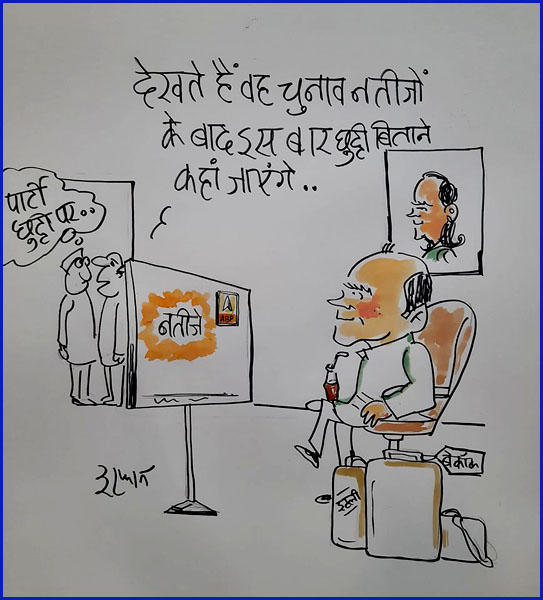 देखते हैं वह चुनाव नतीजों
के बाद इस बार छुट्टी बिताने
कहां जाएंगे..
पार्टी
छुट्टी पर..
नतीजे
ABP
बैंकॉक
इटली
इरफान